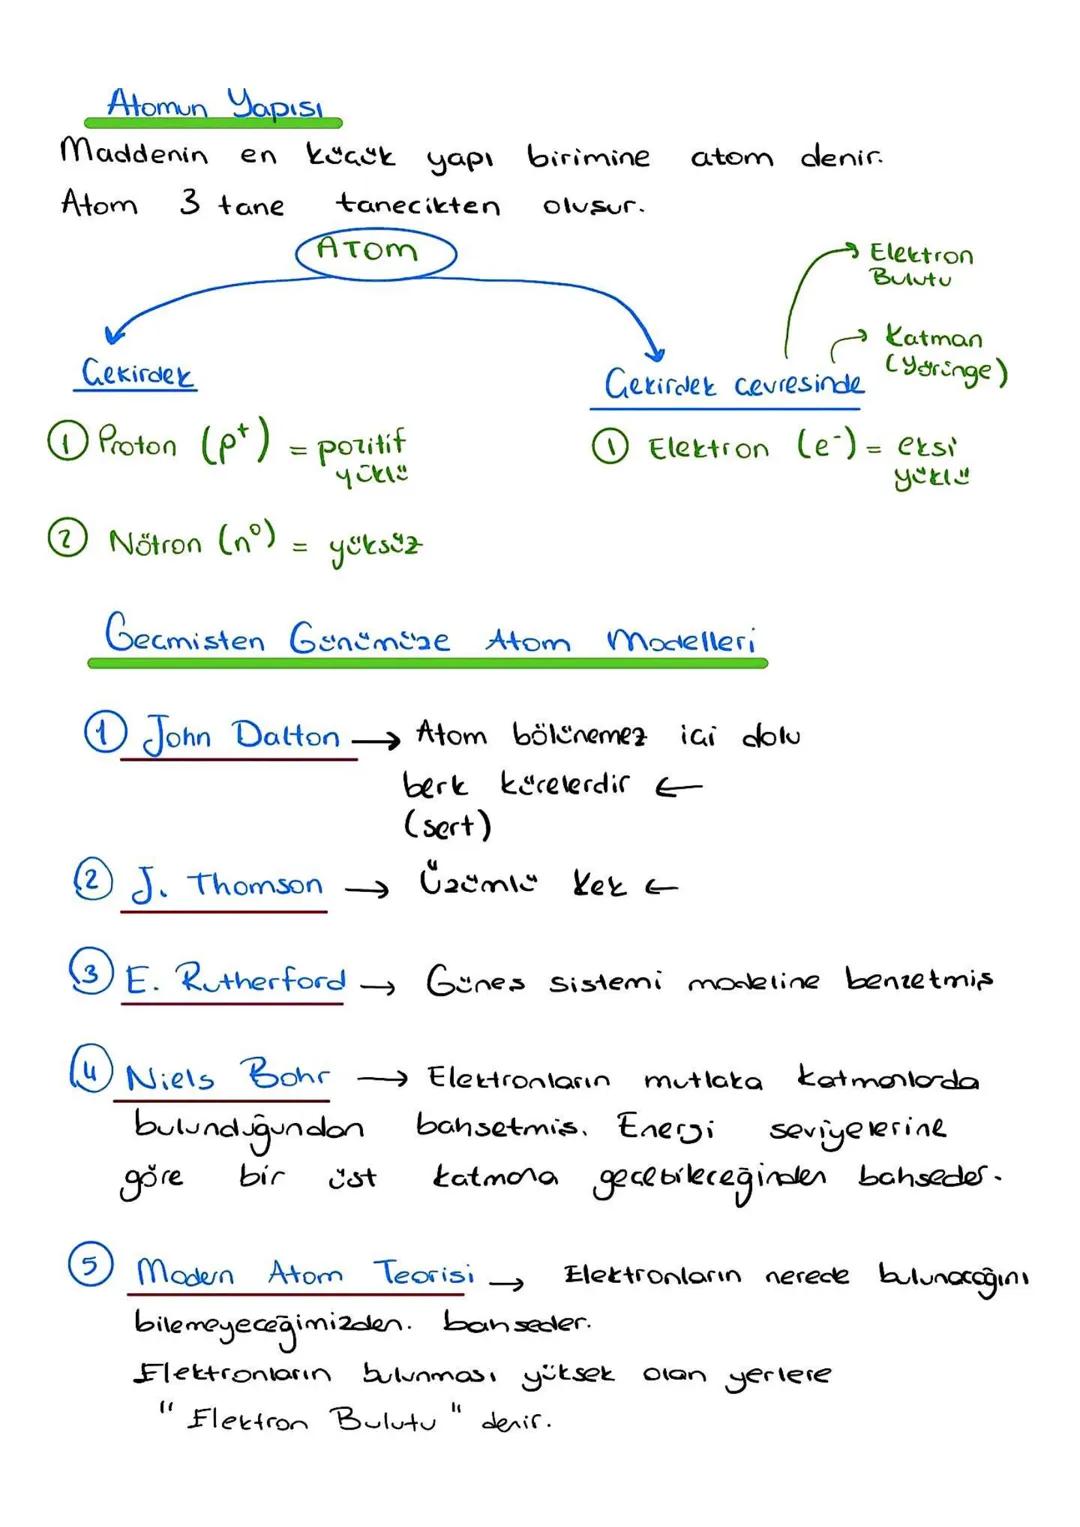 Atomun Yapısı
Maddenin en küçük yapı birimine atom denir.
Atom 3 tane tanecikten oluşur.
ATOM
Elektron
Bulutu
Katman
(Yörünge)
Çekirdek
Çekirdek çevresinde
① Proton (p⁺) = pozitif
yüklü
① Elektron (e⁻) = eksi
yüklü
② Nötron (n⁰) = yüksüz
Geçmişten Günümüze Atom Modelleri
① John Dalton → Atom bölünemez içi dolu
berk kürelerdir ←
(sert)
② J. Thomson → Üzümlü Kek ←
③ E. Rutherford → Güneş sistemi modeline benzetmiş
④ Niels Bohr → Elektronların mutlaka katmanlarda
bulunduğundan bahsetmiş. Enerji seviyelerine
göre bir üst katmana geçebileceğinden bahseder.
⑤ Modern Atom Teorisi → Elektronların nerede bulunacağını
bilemeyeceğimizden. bahseder.
Elektronların bulunması yüksek olan yerlere
"Elektron Bulutu" denir.